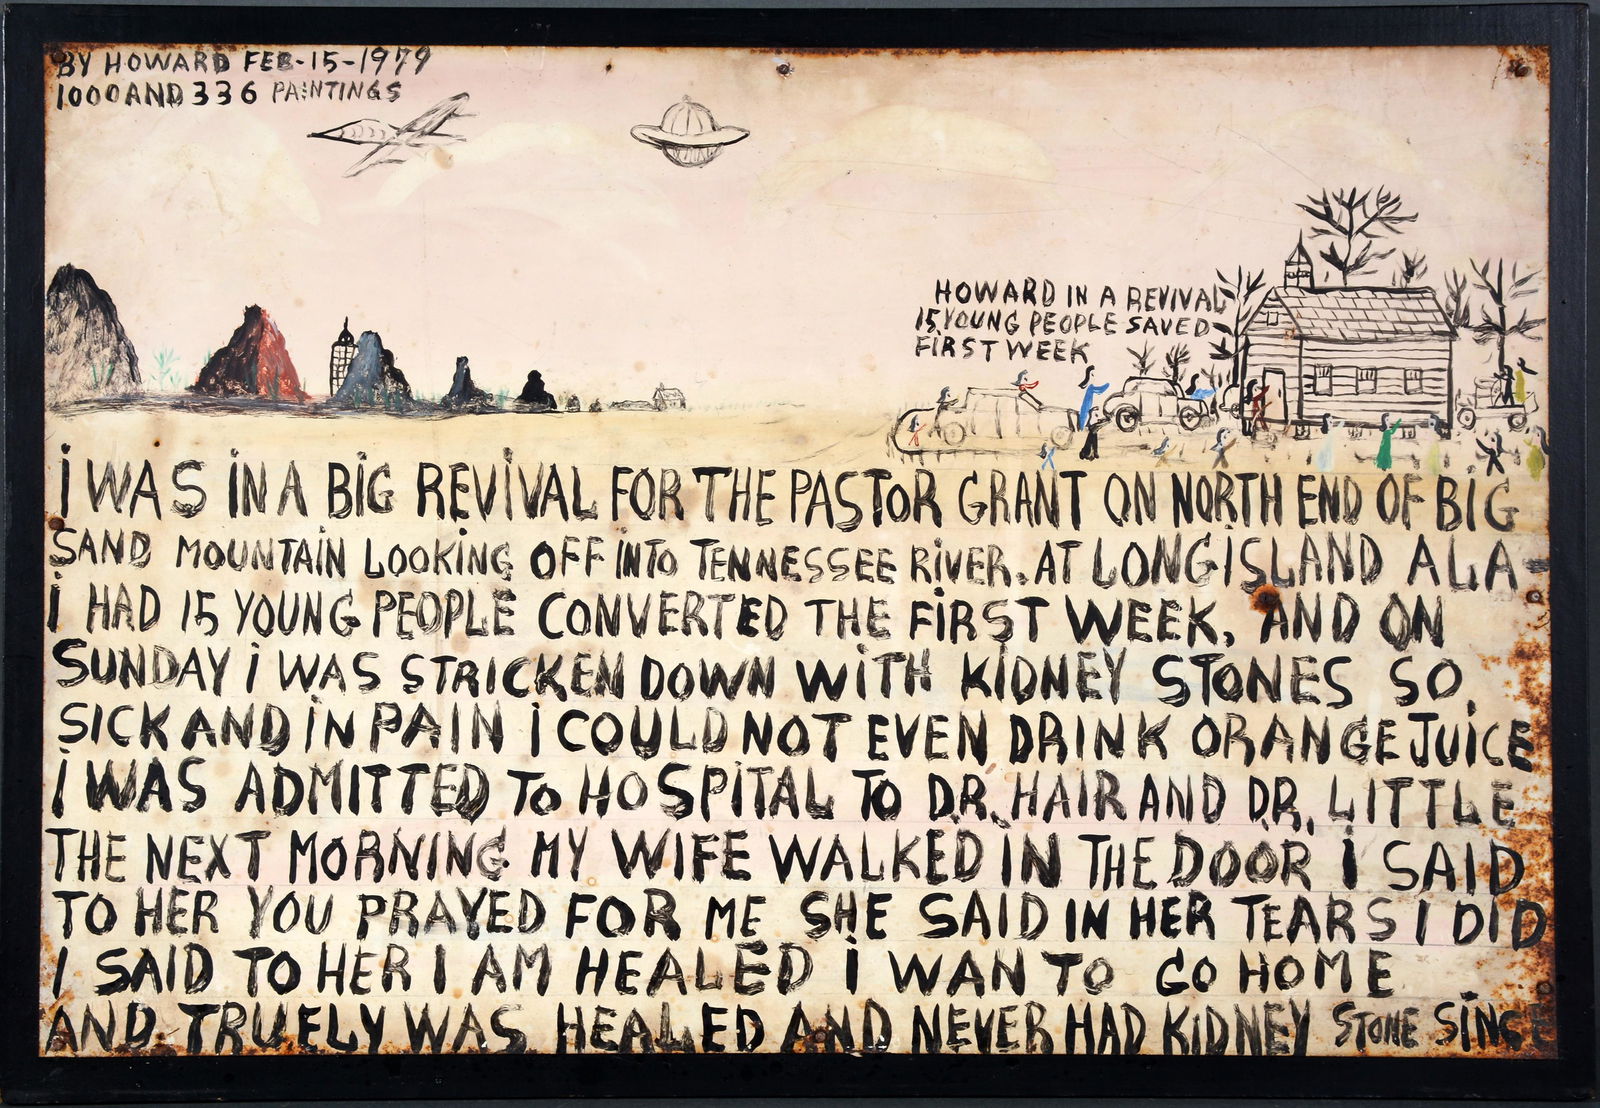 BY HOWARD FEB-15-1979
1000 AND 336 PAINTINGS
HOWARD IN A REVIVAL
15 YOUNG PEOPLE SAVED
FIRST WEEK
i WAS iN A BiG REViVAL FOR THE PASTOR GRANT ON NORTH END OF BiG
SAND MOUNTAIN LOOKING OFF iNTO TENNESSEE RiVER. AT LONG iSLAND ALA-
i HAD 15 YOUNG PEOPLE CONVERTED THE FiRST WEEK, AND ON
SUNDAY i WAS STRICKEN DOWN WiTH KiDNEY STONES SO
SICK AND iN PAIN i COULD NOT EVEN DRINK ORANGE JUiCE
i WAS ADMITTED TO HOSPiTAL TO DR. HAIR AND DR. LITTLE
THE NEXT MORNING MY WIFE WALKED iN THE DOOR i SAID
TO HER YOU PRAYED FOR ME SHE SAID IN HER TEARS I DID
I SAID TO HER I AM HEALED i WAN TO GO HOME
AND TRUELY WAS HEALED AND NEVER HAD KiDNEY STONE SiNCE